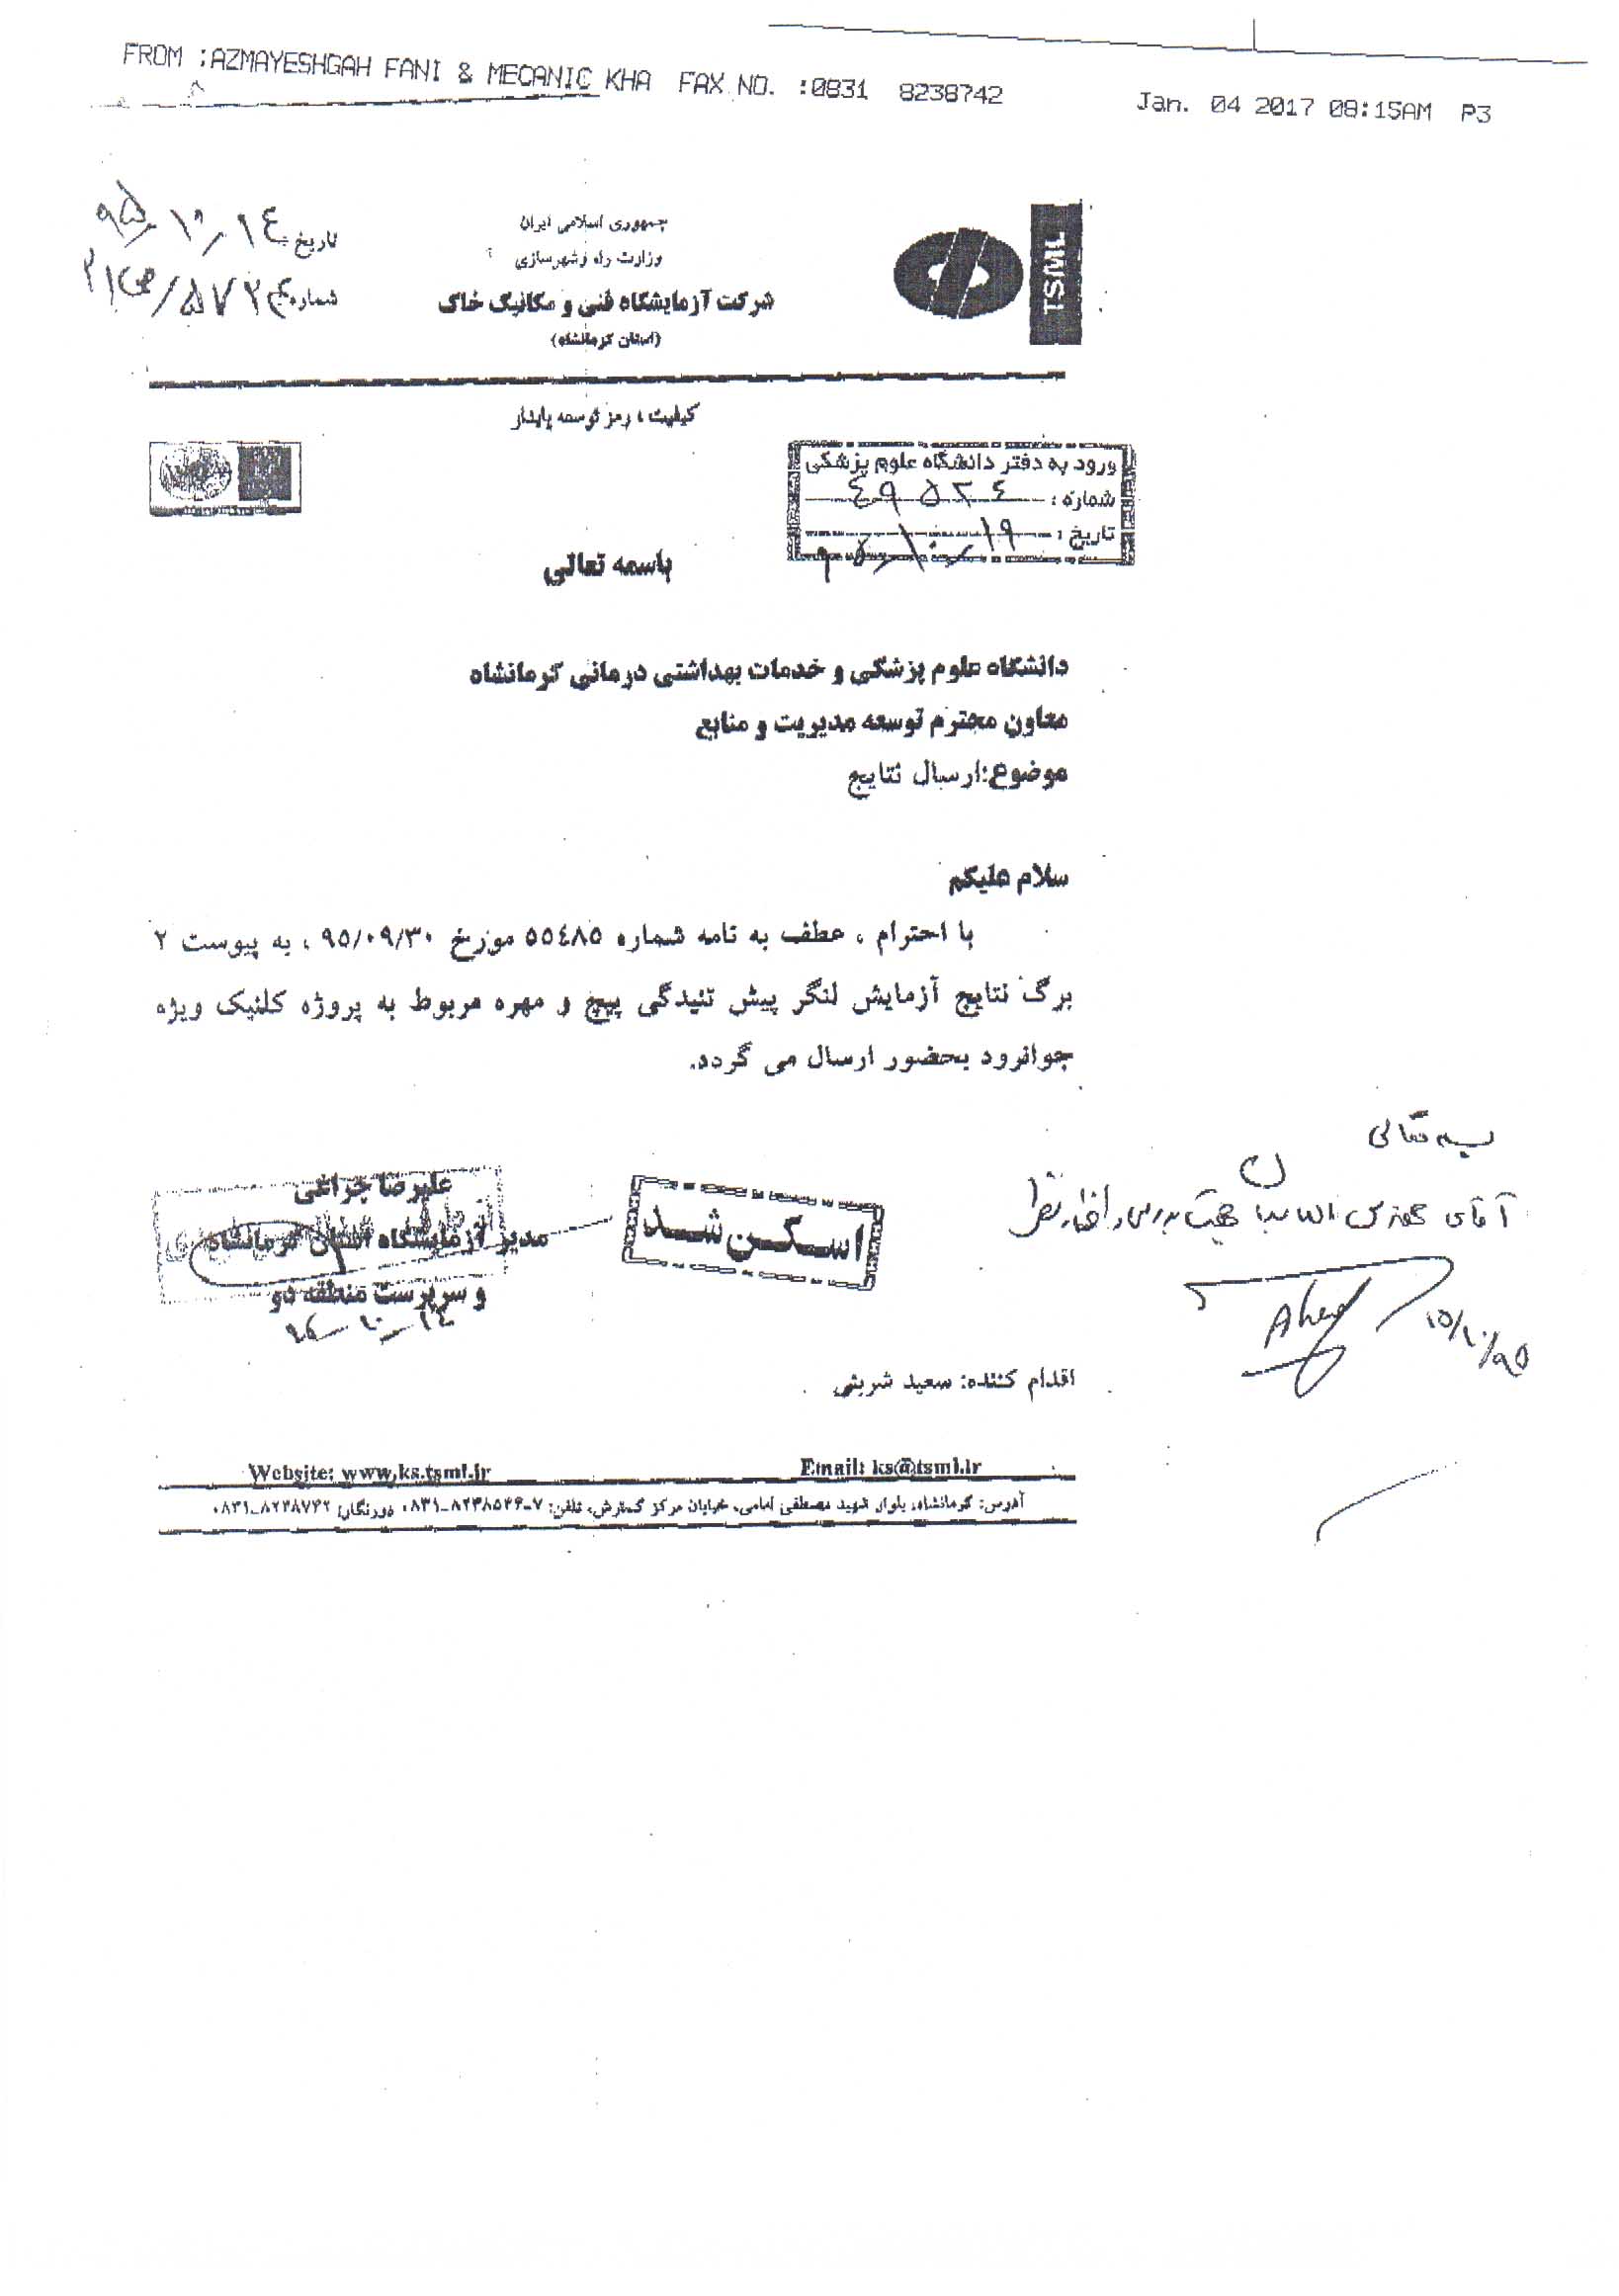 FROM :AZMAYESHGAH FANI & MECANIC KHA FAX NO. :0831 8238742 Jan. 04 2017 08:15AM P3
جمهوری اسلامی ایران
وزارت راه و شهرسازی
شرکت آزمایشگاه فنی و مکانیک خاک
(استان کرمانشاه)
TSML
تاریخ ۹۵/۱۰/۱٤
شماره
کیفیت ، رمز توسعه پایدار
ورود به دفتر دانشگاه علوم پزشکی
شماره : ٤۹۵۲٤
تاریخ : ۹۵/۱۰/۱۹
باسمه تعالی
دانشگاه علوم پزشکی و خدمات بهداشتی درمانی کرمانشاه
معاون محترم توسعه مدیریت و منابع
موضوع:ارسال نتایج
سلام علیکم
با احترام ، عطف به نامه شماره ۵۵٤۸۵ مورخ ۹۵/۰۹/۳۰ ، به پیوست ۲
برگ نتایج آزمایش لنگر پیش تنیدگی پیچ و مهره مربوط به پروژه کلنیک ویژه
جوانرود بحضور ارسال می گردد.
علیرضا چراغی
مدیر آزمایشگاه استان کرمانشاه
و سرپرست منطقه دو
اسکن شد
آقای مهندس جهت بررسی
۹۵/۱۰/۱۵
اقدام کننده: سعید شربتی
Website: www.ks.tsml.ir Email: ks@tsml.ir
آدرس: کرمانشاه، بلوار شهید مصطفی امامی، خیابان مرکز گسترش، تلفن: ۷-۸۲۳۸۵۴۶-۰۸۳۱ دورنگار: ۸۲۳۸۷۴۲-۰۸۳۱